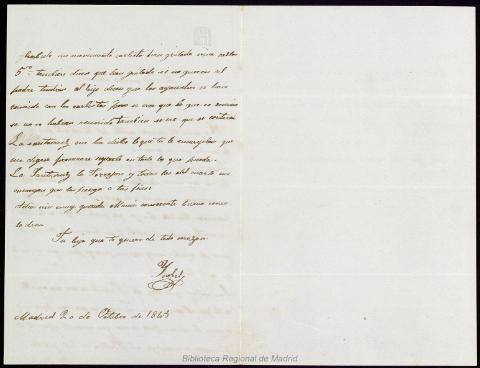 habido un movimiento carlista han gritado viva carlos
5º tambien dicen que han gritado si no quieren al
padre tendrán al hijo dicen que los ayacuchos se han
reunido con los carlistas pero se cree que los que se
no se habían reunido tambien se cree que se
La santacruz me ha dicho lo que tu le encargabas que
me digese procurare seguirlo en todo lo que pueda.
La Santacruz la y todas las del cuarto me
encargan que las ponga a tus pies.
Adios mi muy querida Mamá consérvate buena como
lo desea
Tu hija que te quiere de todo corazon
Ysabel
Madrid 20 de Octubre de 1843
Biblioteca Regional de Madrid